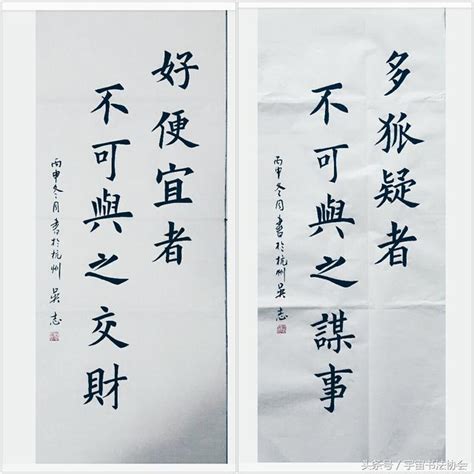 好便宜者
不可與之交財
丙申冬月書於杭州 吳志
多狐疑者
不可與之謀事
丙申冬月書於杭州 吳志
头条号／宇宙书法协会